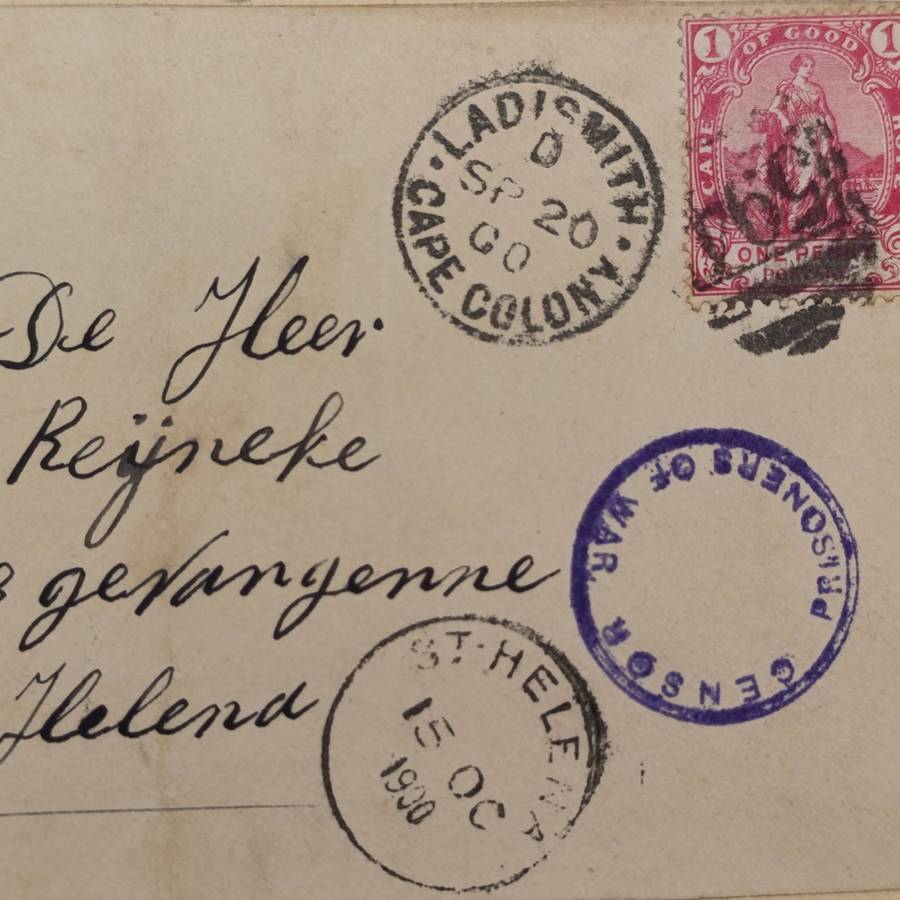 1 OF GOOD 1
CAPE
ONE PE
LADISMITH
D
SP 20
00
CAPE COLONY
De Heer
Reÿneke
gevangenne
Helena
PRISONERS OF WAR
CENSOR
ST. HELENA
15 OC
1900